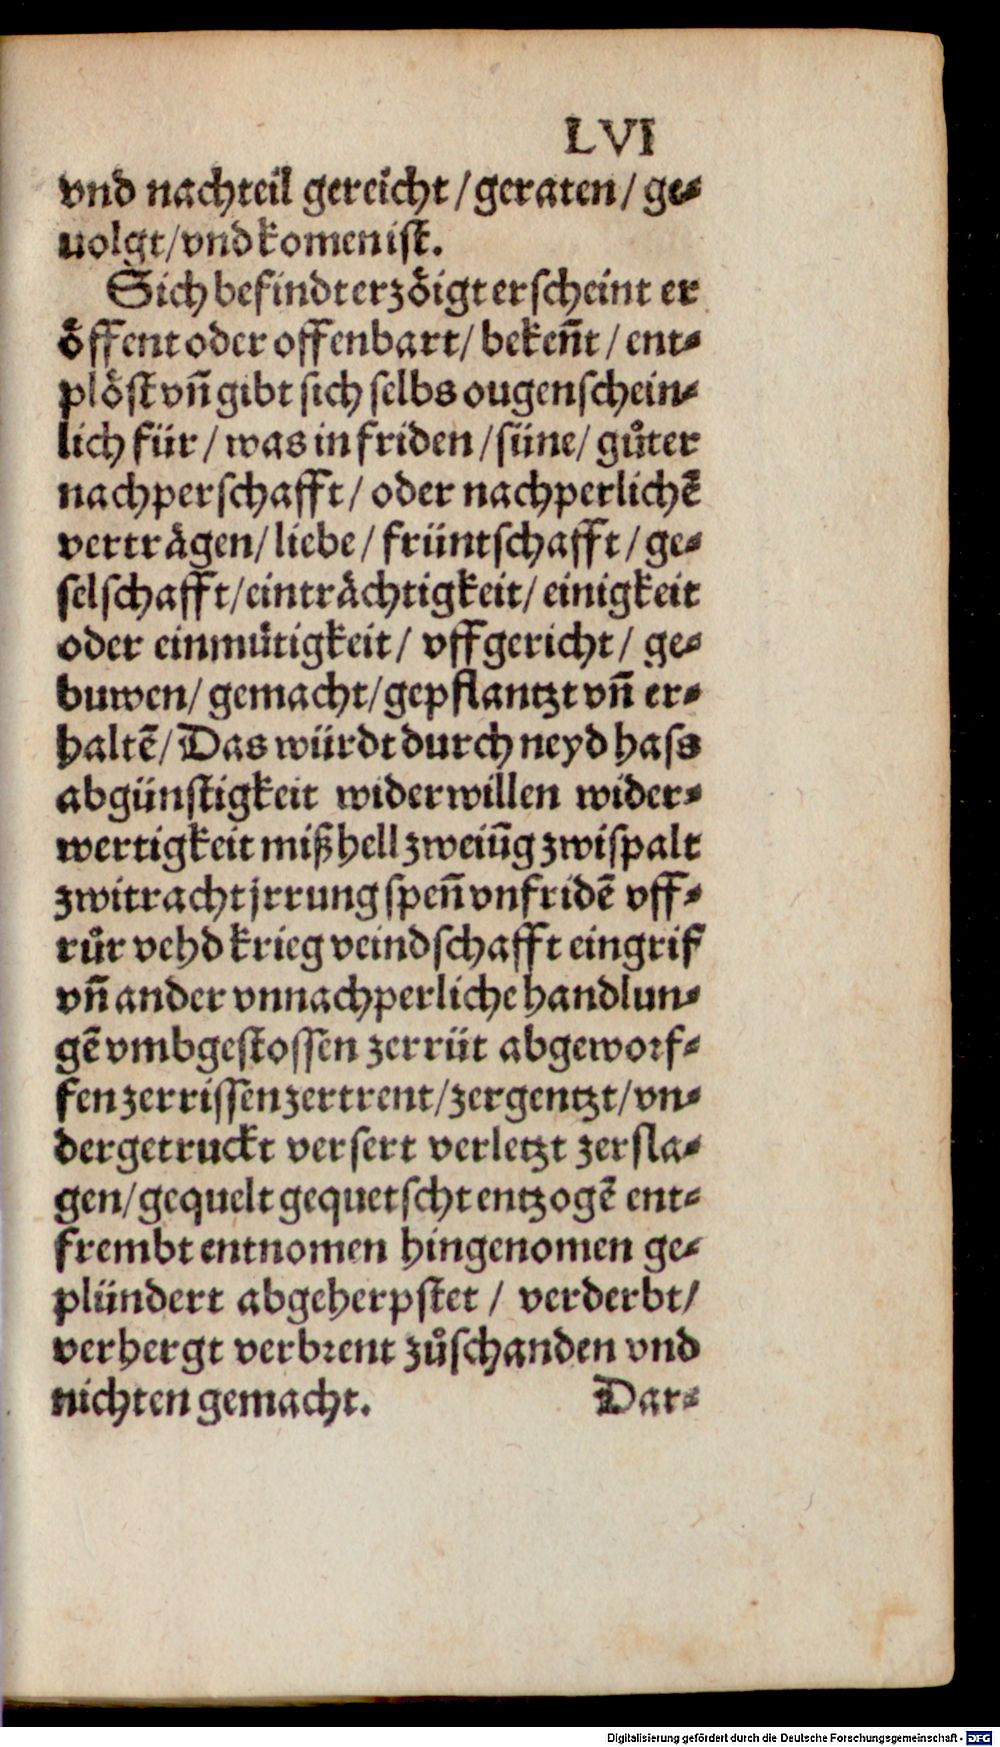 LVI
vnd nachteil gereicht / geraten / ge⸗
uolgt / vnd komen ist.
Sich befindt erzöigt erscheint er
öffent oder offenbart / bekeñt / ent⸗
plöst vñ gibt sich selbs ougenschein⸗
lich für / was in friden / süne / gůter
nachperschafft / oder nachperlichē
verträgen / liebe / früntschafft / ge⸗
selschafft / einträchtigkeit / einigkeit
oder einmütigkeit / vffgericht / ge⸗
buwen / gemacht / gepflantzt vñ er⸗
haltē / Das würdt durch neyd hass
abgünstigkeit widerwillen wider⸗
wertigkeit mißhell zweiūg zwispalt
zwitracht jrrung speñ vnfridē vff⸗
růr vehd krieg veindschafft eingrif
vñ ander vnnachperliche handlun⸗
gē vmbgestossen zerrüt abgeworf⸗
fen zerrissen zertrent / zergentzt / vn⸗
dergetruckt versert verletzt zersla⸗
gen / gequelt gequetscht entzogē ent⸗
frembt entnomen hingenomen ge⸗
plündert abgeherpstet / verderbt /
verhergt verbrent zůschanden vnd
nichten gemacht. Dar⸗
Digitalisierung gefördert durch die Deutsche Forschungsgemeinschaft - DFG